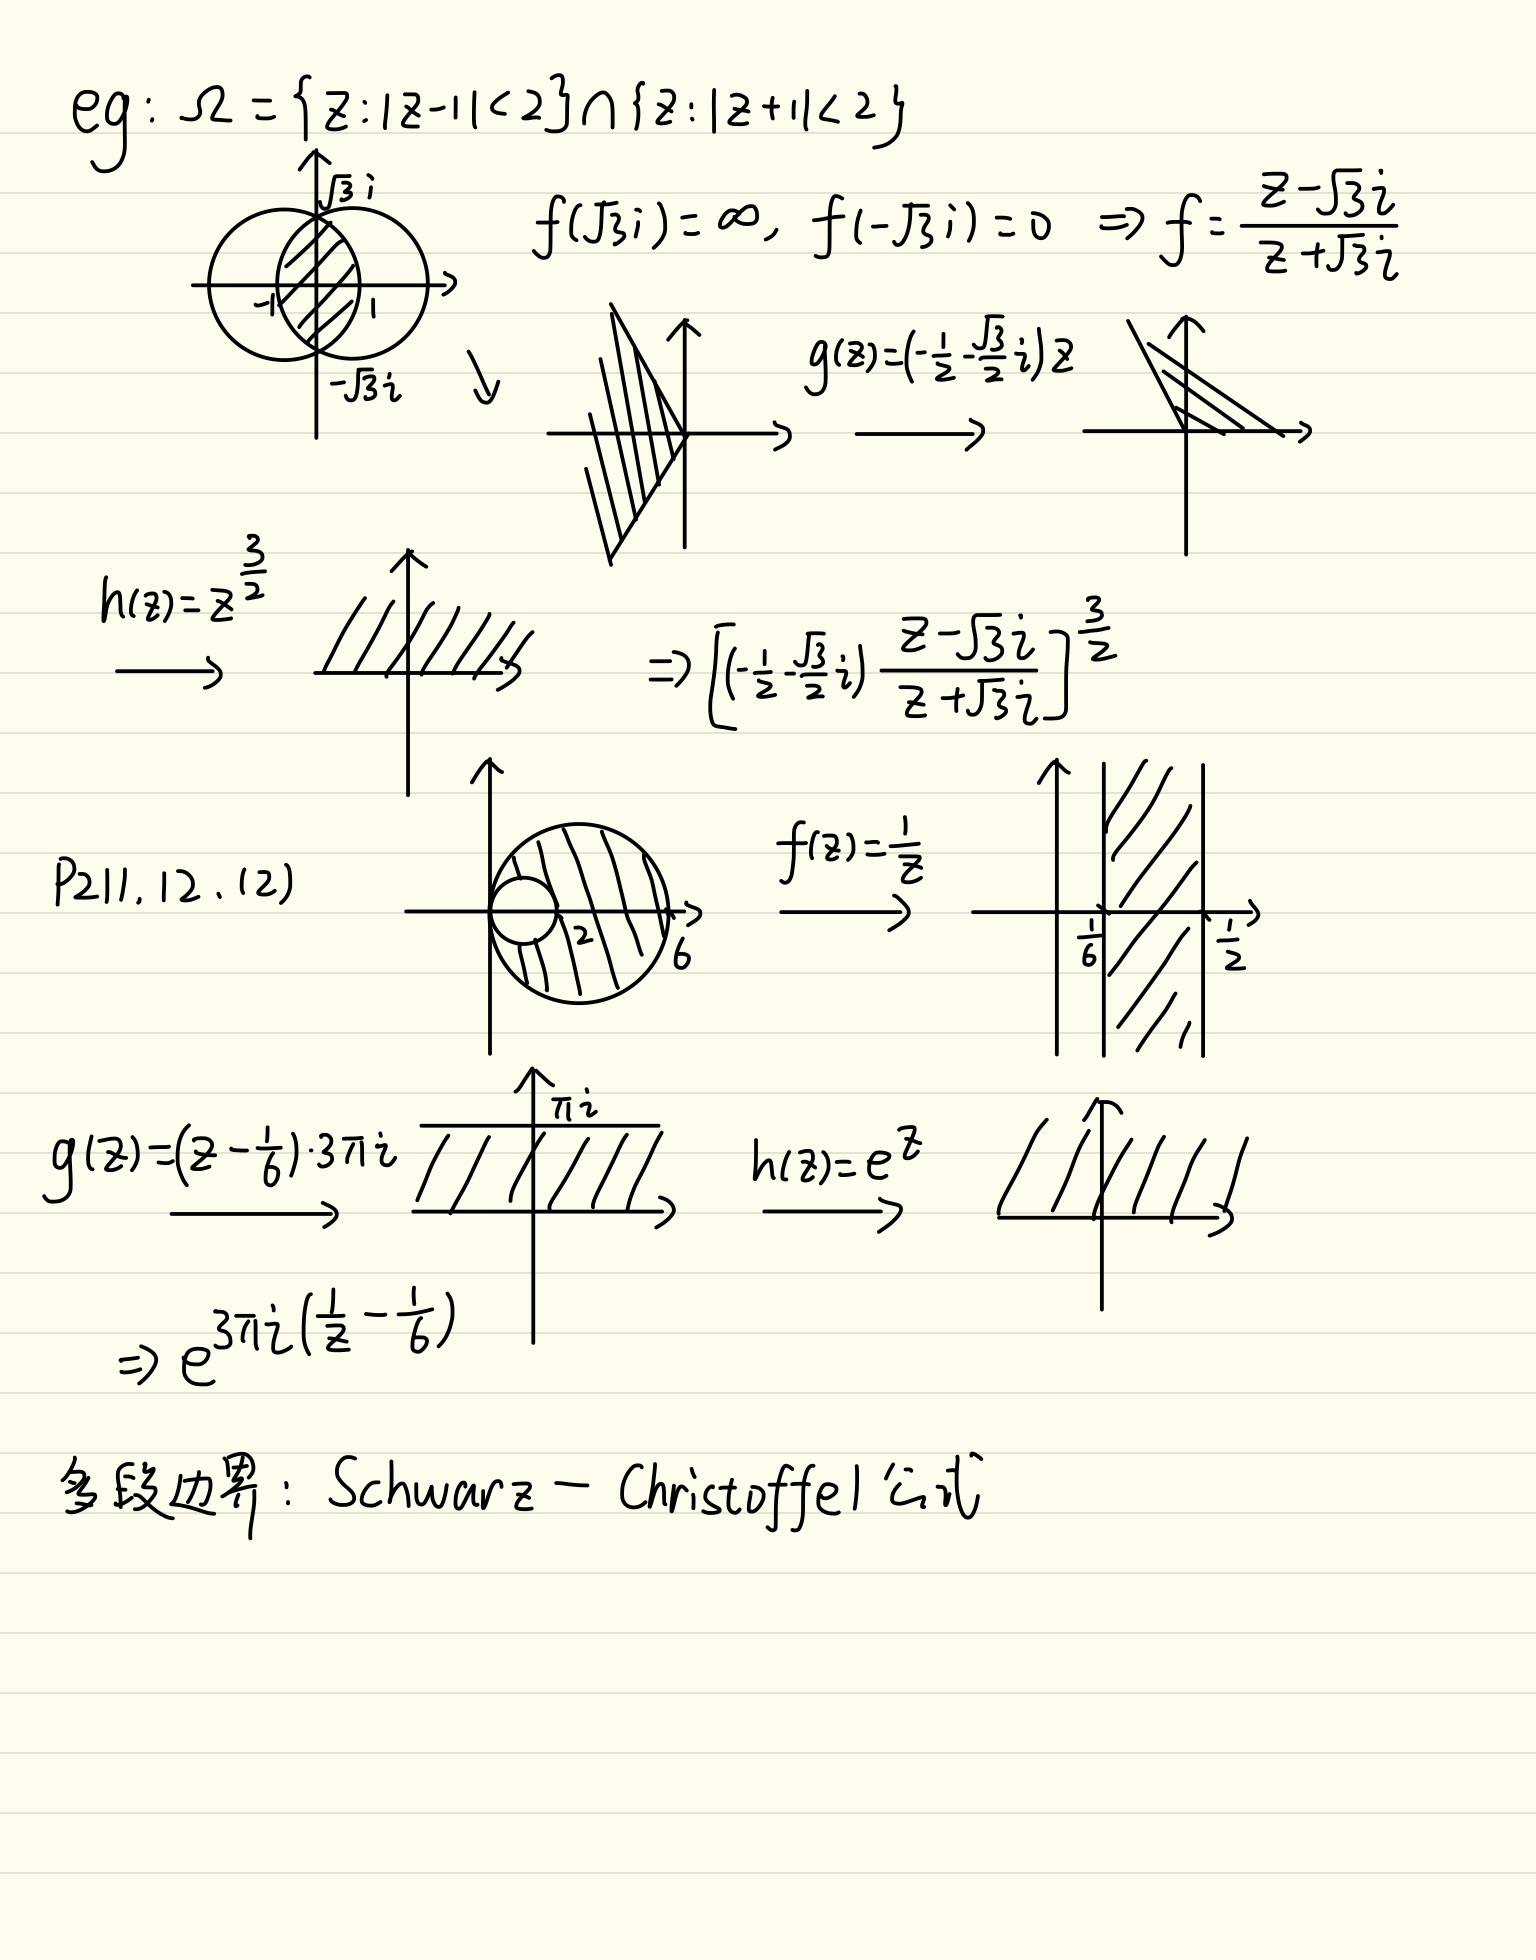 eg: Ω = {z:|z-1|<2}∩{z:|z+1|<2}
√3 i
-1
1
-√3 i
f(√3 i) = ∞, f(-√3 i) = 0 ⇒ f = \frac{z-√3 i}{z+√3 i}
g(z) = (-\frac{1}{2} - \frac{√3}{2} i) z
h(z) = z^{\frac{3}{2}}
⇒ [(-\frac{1}{2} - \frac{√3}{2} i) \frac{z-√3 i}{z+√3 i}]^{\frac{3}{2}}
P211. 12. (2)
2
6
f(z) = \frac{1}{z}
\frac{1}{6}
\frac{1}{2}
g(z) = (z - \frac{1}{6}) · 3πi
πi
h(z) = e^z
⇒ e^{3πi(\frac{1}{z} - \frac{1}{6})}
多段边界: Schwarz - Christoffel 公式